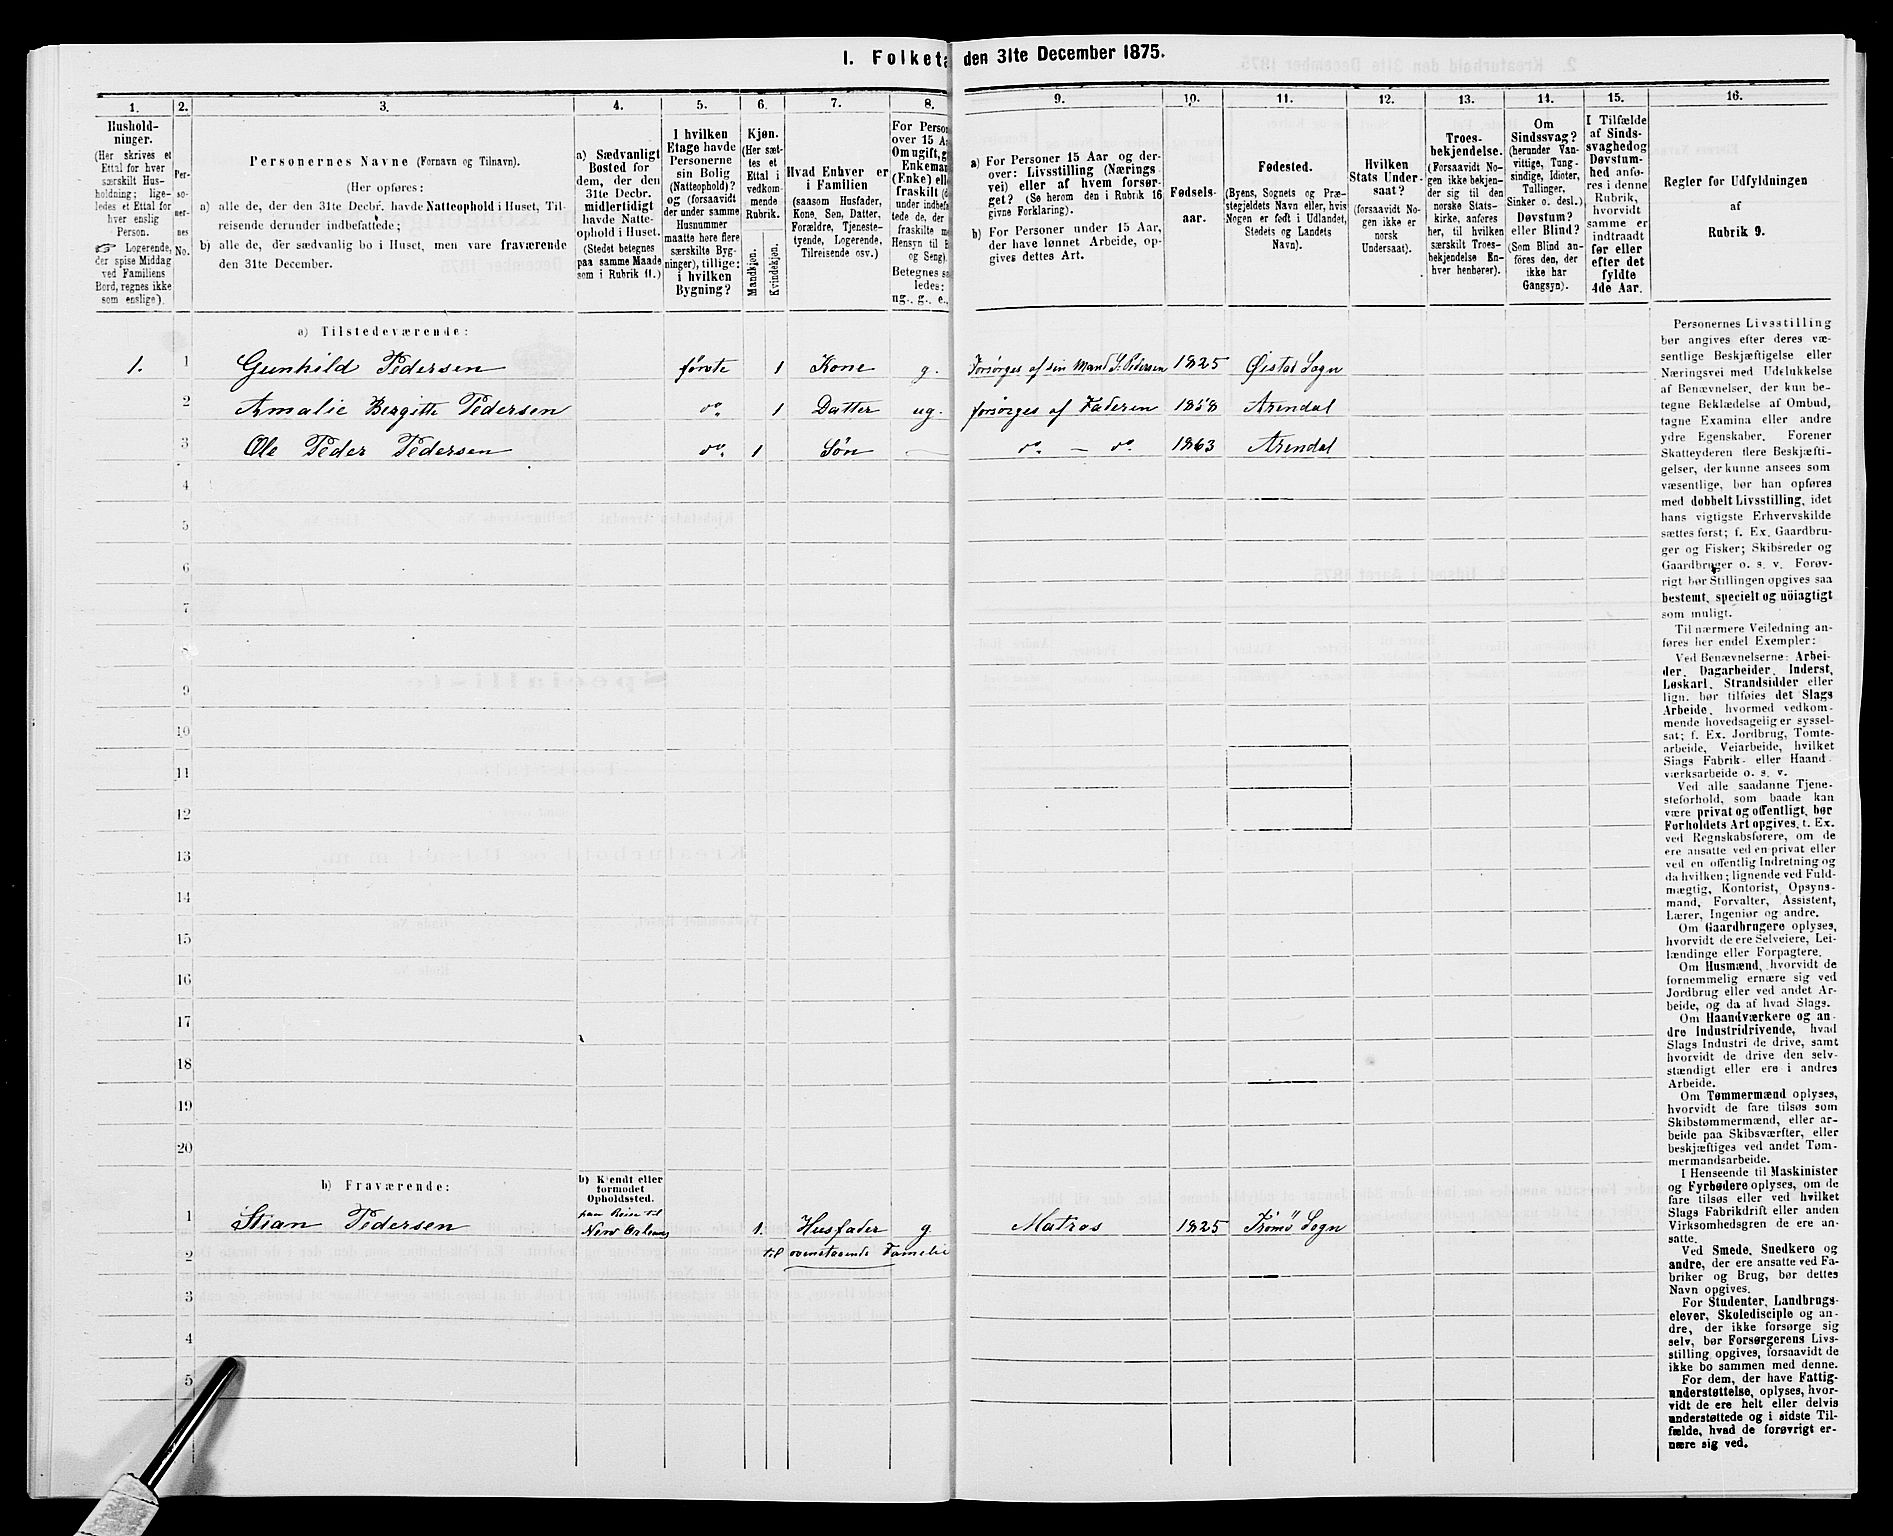 I. Folketa den 31te December 1875.
1. 2. 3. 4. 5. 6. 7. 8. 9. 10. 11. 12. 13. 14. 15. 16.
Hushold-
ninger.
(Her skrives et
Ettal for hver
særskilt Hus-
holdning; lige-
ledes et Ettal for
hver enslig
Person.
☞ Logerende,
der spise Middag
ved Familiens
Bord, regnes ikke
som enslige).
Per-
so-
ner-
nes
No.
Personernes Navne (Fornavn og Tilnavn).
(Her opføres:
a) alle de, der den 31te Decbr. havde Natteophold i Huset, Til-
reisende derunder indbefattede;
b) alle de, der sædvanlig bo i Huset, men vare fraværende
den 31te December.
a) Sædvanligt
Bosted for
dem, der den
31te Decbr.
midlertidigt
havde Natte-
ophold i Huset.
(Stedet betegnes
paa samme Maade
som i Rubrik 11.)
I hvilken
Etage havde
Personerne
sin Bolig
(Natteophold)?
og (forsaavidt
der under samme
Husnummer
maatte høre flere
særskilte Byg-
ninger), tillige:
i hvilken
Bygning?
Kjøn.
(Her sæt-
tes et
Ettal i
vedkom-
mende
Rubrik.
Mandkjøn.
Kvindekjøn.
Hvad Enhver er
i Familien
(saasom Husfader,
Kone, Søn, Datter,
Forældre, Tjeneste-
tyende, Logerende,
Tilreisende osv.)
For Person
over 15 A
Om ugift, g
Enkeman
(Enke) ell
fraskilt (d
under indbefa
tede de, der
fraskilte m
Hensyn til B
og Seng).
Betegnes sa
ledes:
ug., g., e.,
a) For Personer 15 Aar og der-
over: Livsstilling (Nærings-
vei) eller af hvem forsør-
get? (Se herom den i Rubrik 16
givne Forklaring).
b) For Personer under 15 Aar,
der have lønnet Arbeide, op-
gives dettes Art.
Fødsels-
aar.
Fødested.
(Byens, Sognets og Præ-
stegjeldets Navn eller, hvis
Nogen er født i Udlandet,
Stedets og Landets
Navn).
Hvilken
Stats Under-
saat?
(forsaavidt No-
gen ikke er
norsk
Undersaat).
Troes-
bekjendelse.
(Forsaavidt No-
gen ikke bekjen-
der sig til den
norske Stats-
kirke, anføres
her, til hvilken
særskilt Troes-
bekjendelse En-
hver henhører).
Om
Sindssvag?
(herunder Van-
vittige, Tung-
sindige, Idioter,
Tullinger,
Sinker o. desl.)
Døvstum?
eller Blind?
(Som Blind an-
føres den, der
ikke har
Gangsyn).
I Tilfælde
af Sinds-
svaghed og
Døvstum-
hed anfø-
res i denne
Rubrik,
hvorvidt
samme er
indtraadt
før eller
efter det
fyldte
4de Aar.
Regler for Udfyldningen
af
Rubrik 9.
a) Tilstedeværende:
1. 1 Gunhild Pedersen første 1 Kone g. Forsørges af sin Mand S. Pedersen 1825 Øistad Sogn
2 Amalie Bergitte Pedersen do. 1 Datter ug. forsørges af Faderen 1858 Arendal
3 Ole Peder Pedersen do. 1 Søn do. — do. 1863 Arendal
4
5
6
7
8
9
10
11
12
13
14
15
16
17
18
19
20
b) Fraværende:
b) Kjendt eller
formodet
Opholdssted.
paa Reise til
1 Stian Pedersen New Orleans 1. Husfader g Matros 1825 Tromö Sogn
2 til ovenstaaende Familie
3
4
5
Personernes Livsstilling
bør angives efter deres væ-
sentlige Beskjæftigelse eller
Næringsvei med Udelukkelse
af Benævnelser, der kun be-
tegne Beklædelse af Ombud,
tagne Examina eller andre
ydre Egenskaber. Forener
Skatteyderen flere Beskjæfti-
gelser, der kunne ansees som
væsentlige, bør han opføres
med dobbelt Livsstilling, idet
hans vigtigste Erhvervskilde
sættes først; f. Ex. Gaardbru-
ger og Fisker; Skibsreder og
Gaardbruger o. s. v. Forøv-
rigt bør Stillingen opgives saa
bestemt, specielt og nöiagtigt
som muligt.
Til nærmere Veiledning an-
føres her endel Exempler:
Ved Benævnelserne: Arbei-
der, Dagarbeider, Inderst,
Løskarl, Strandsidder eller
lign. bør tilføies det Slags
Arbeide, hvormed vedkom-
mende hovedsagelig er syssel-
sat; f. Ex. Jordbrug, Tomte-
arbeide, Veiarbeide, hvilket
Slags Fabrik- eller Haand-
værksarbeide o. s. v.
Ved alle saadanne Tjene-
steforhold, som baade kan
være privat og offentligt, bør
Forholdets Art opgives, t. Ex.
ved Regnskabsførere, om de
ere ansatte ved en privat eller
ved en offentlig Indretning og
da hvilken; lignende ved Fuld-
mægtig, Kontorist, Opsyns-
mand, Forvalter, Assistent,
Lærer, Ingeniør og andre.
Om Gaardbrugere oplyses,
hvorvidt de ere Selveiere, Lei-
lændinge eller Forpagtere.
Om Husmænd, hvorvidt de
fornemmelig ernære sig ved
Jordbrug eller ved andet Ar-
beide, og da af hvad Slags.
Om Haandværkere og an-
dre Industridrivende, hvad
Slags Industri de drive, samt
hvorvidt de drive den selv-
stændigt eller ere i andres
Arbeide.
Om Tømmermænd oplyses,
hvorvidt de fare tilsøs som
Skibstømmermænd, eller ar-
beide paa Skibsværfter, eller
beskjæftiges ved andet Tøm-
mermandsarbeide.
I Henseende til Maskinister
og Fyrbødere oplyses, om de
fare tilsøs eller ved hvilket
Slags Fabrikdrift eller anden
Virksomhedsgren de ere an-
satte.
Ved Smede, Snedkere og
andre, der ere ansatte ved Fa-
briker og Brug, bør dettes
Navn opgives.
For Studenter, Landbrugs-
elever, Skoledisciple og an-
dre, der ikke forsørge sig
selv, bør Forsørgerens Livs-
stilling opgives, forsaavidt de
ikke bo sammen med denne.
For dem, der have Fattig-
understøttelse, oplyses, hvor-
vidt de ere helt eller delvis
understøttede og i sidste Til-
fælde, hvad de forøvrigt er-
nære sig ved.